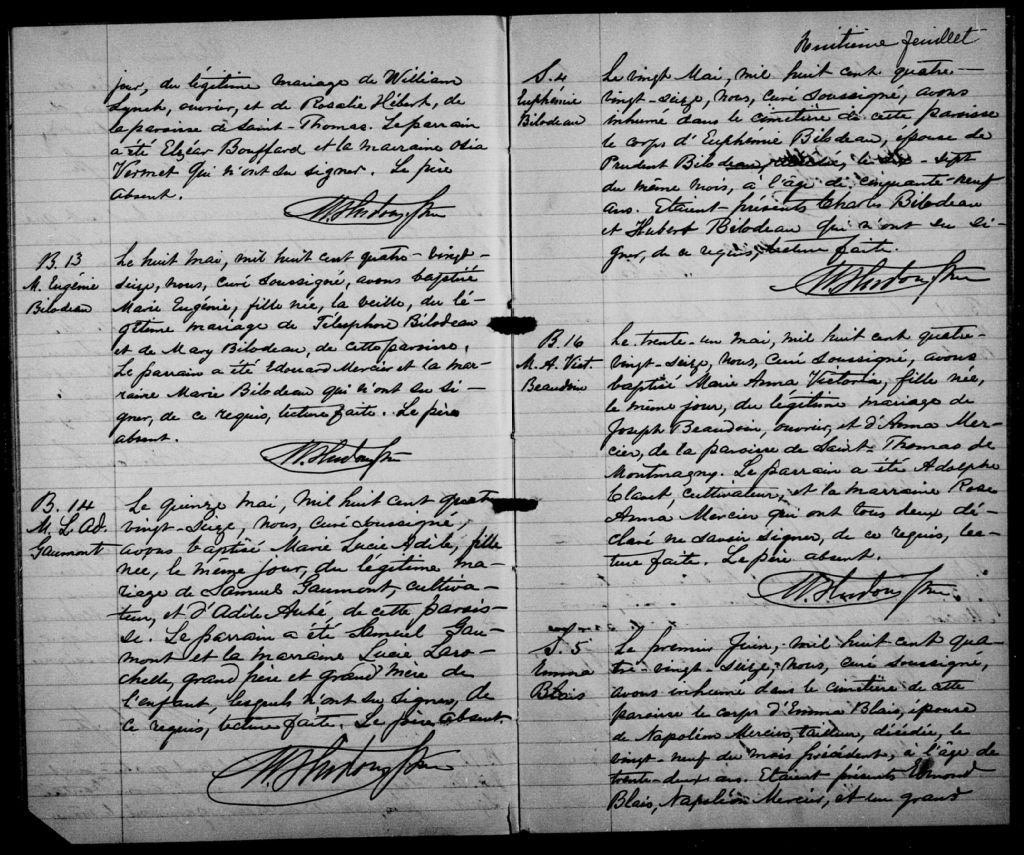 jour, du légitime mariage de William
Lynch, ouvrier, et de Rosalie Hébert, de
la paroisse de Saint-Thomas. Le parrain
a été Elzéar Bouffard et la marraine Osia
Vermet qui n'ont su signer. Le père
absent.
B. 13
M. Eugénie
Bilodeau
Le huit Mai, mil huit cent quatre-vingt-
seize, nous, curé soussigné, avons baptisé
Marie Eugénie, fille née, la veille, du lé-
gitime mariage de Télesphore Bilodeau
et de Mary Bilodeau, de cette paroisse.
Le parrain a été Edouard Mercier et la mar-
raine Marie Bilodeau qui n'ont su si-
gner, de ce requis, lecture faite. Le père
absent.
B. 14
M. L. Ad.
Gaumont
Le quinze Mai, mil huit cent quatre
vingt-seize, nous, curé soussigné,
avons baptisé Marie Lucie Adile, fille
née, le même jour, du légitime ma-
riage de Samuel Gaumont, cultiva-
teur, et d'Adile Aubé, de cette parois-
se. Le parrain a été Samuel Gau-
mont et la marraine Lucie Laro-
chelle, grand père et grand'mère de
l'enfant, lesquels n'ont su signer, de
ce requis, lecture faite. Le père absent.
Huitième feuillet
S. 4
Euphémie
Bilodeau
Le vingt Mai, mil huit cent quatre-
vingt-seize, nous, curé soussigné, avons
inhumé dans le cimetière de cette paroisse
le corps d'Euphémie Bilodeau, épouse de
Prudent Bilodeau, le sept
du même mois, à l'âge de cinquante-neuf
ans. Etaient présents Charles Bilodeau
et Hubert Bilodeau qui n'ont su si-
gner, de ce requis, lecture faite.
B. 16
M. A. Vict.
Beaudoin
Le trente-un Mai, mil huit cent quatre-
vingt-seize, nous, curé soussigné, avons
baptisé Marie Anna Victoria, fille née,
le même jour, du légitime mariage de
Joseph Beaudoin, ouvrier, et d'Anna Mer-
cier, de la paroisse de Saint-Thomas de
Montmagny. Le parrain a été Adolphe
Clavet, cultivateur, et la marraine Rose
Anna Mercier qui ont tous deux dé-
claré ne savoir signer, de ce requis, lec-
ture faite. Le père absent.
S. 5
Emma
Blais
Le premier Juin, mil huit cent qua-
tre-vingt-seize, nous, curé soussigné,
avons inhumé dans le cimetière de cette
paroisse le corps d'Emma Blais, épouse
de Napoléon Mercier, tailleur, décédée, le
vingt-neuf du mois précédent, à l'âge de
trente-deux ans. Etaient présents Edmond
Blais, Napoléon Mercier, et un grand